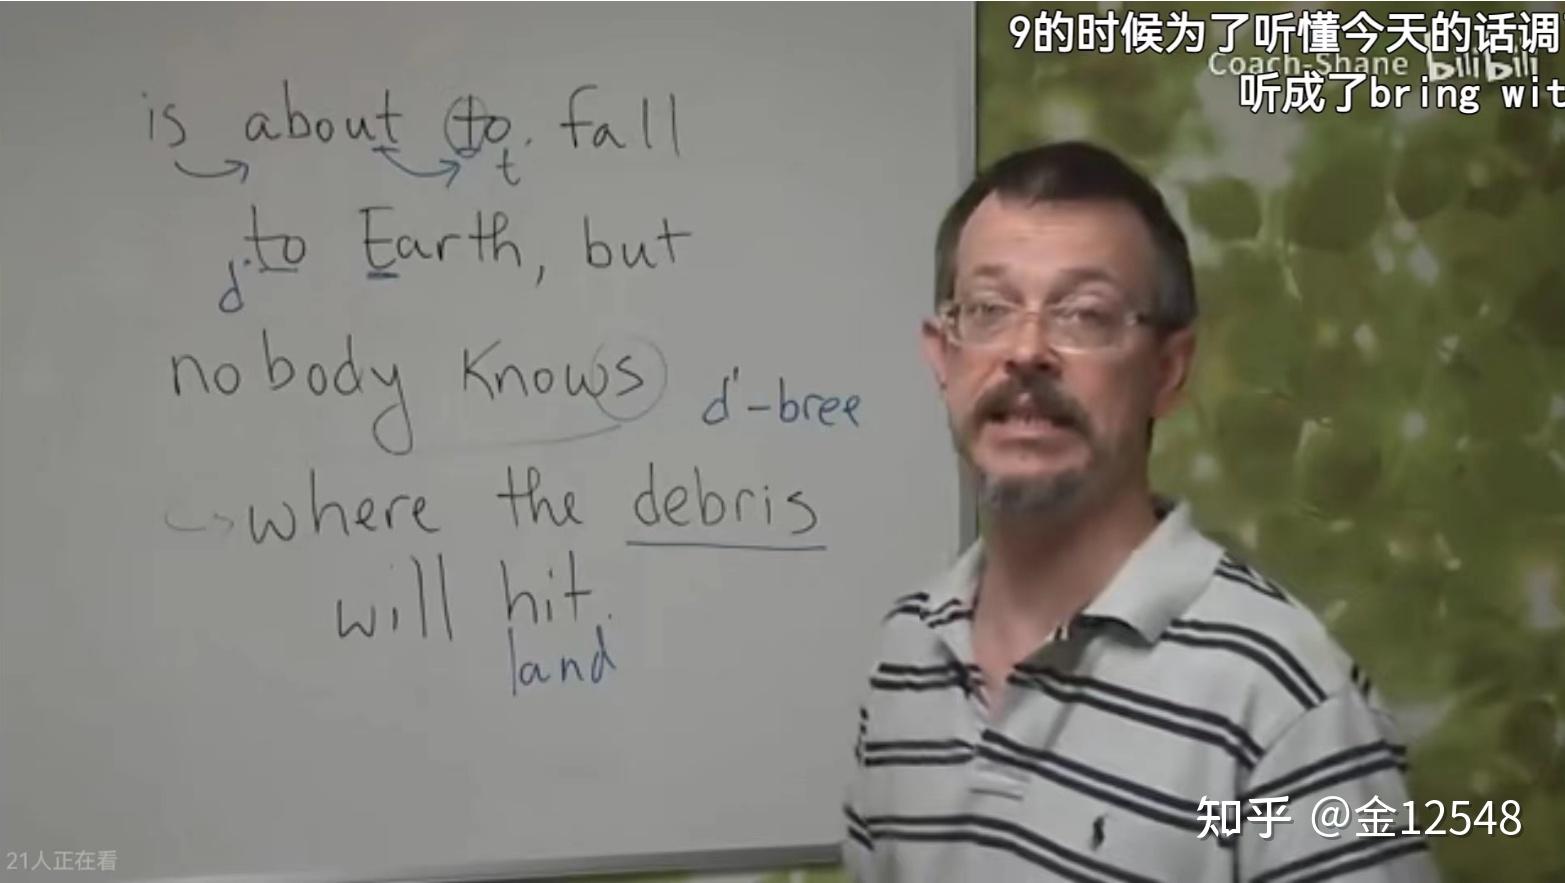 9的时候为了听懂今天的话调
Coach-Shane bilibili
听成了bring wit
is about to. fall
t
d' to Earth, but
nobody knows
d'-bree
where the debris
will hit.
land
知乎 @金12548
21人正在看